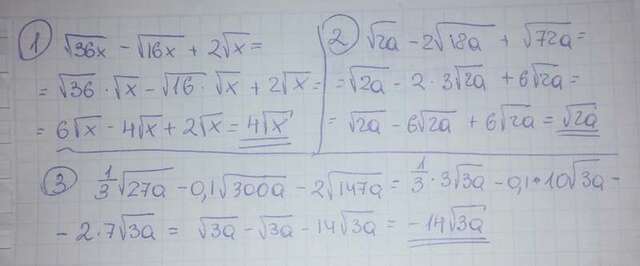 ① √36x − √16x + 2√x =
= √36 · √x − √16 · √x + 2√x =
= 6√x − 4√x + 2√x = 4√x
② √2a − 2√18a + √72a =
= √2a − 2 · 3√2a + 6√2a =
= √2a − 6√2a + 6√2a = √2a
③ 1/3 √27a − 0,1√300a − 2√147a = 1/3 · 3√3a − 0,1 · 10√3a −
− 2 · 7√3a = √3a − √3a − 14√3a = −14√3a